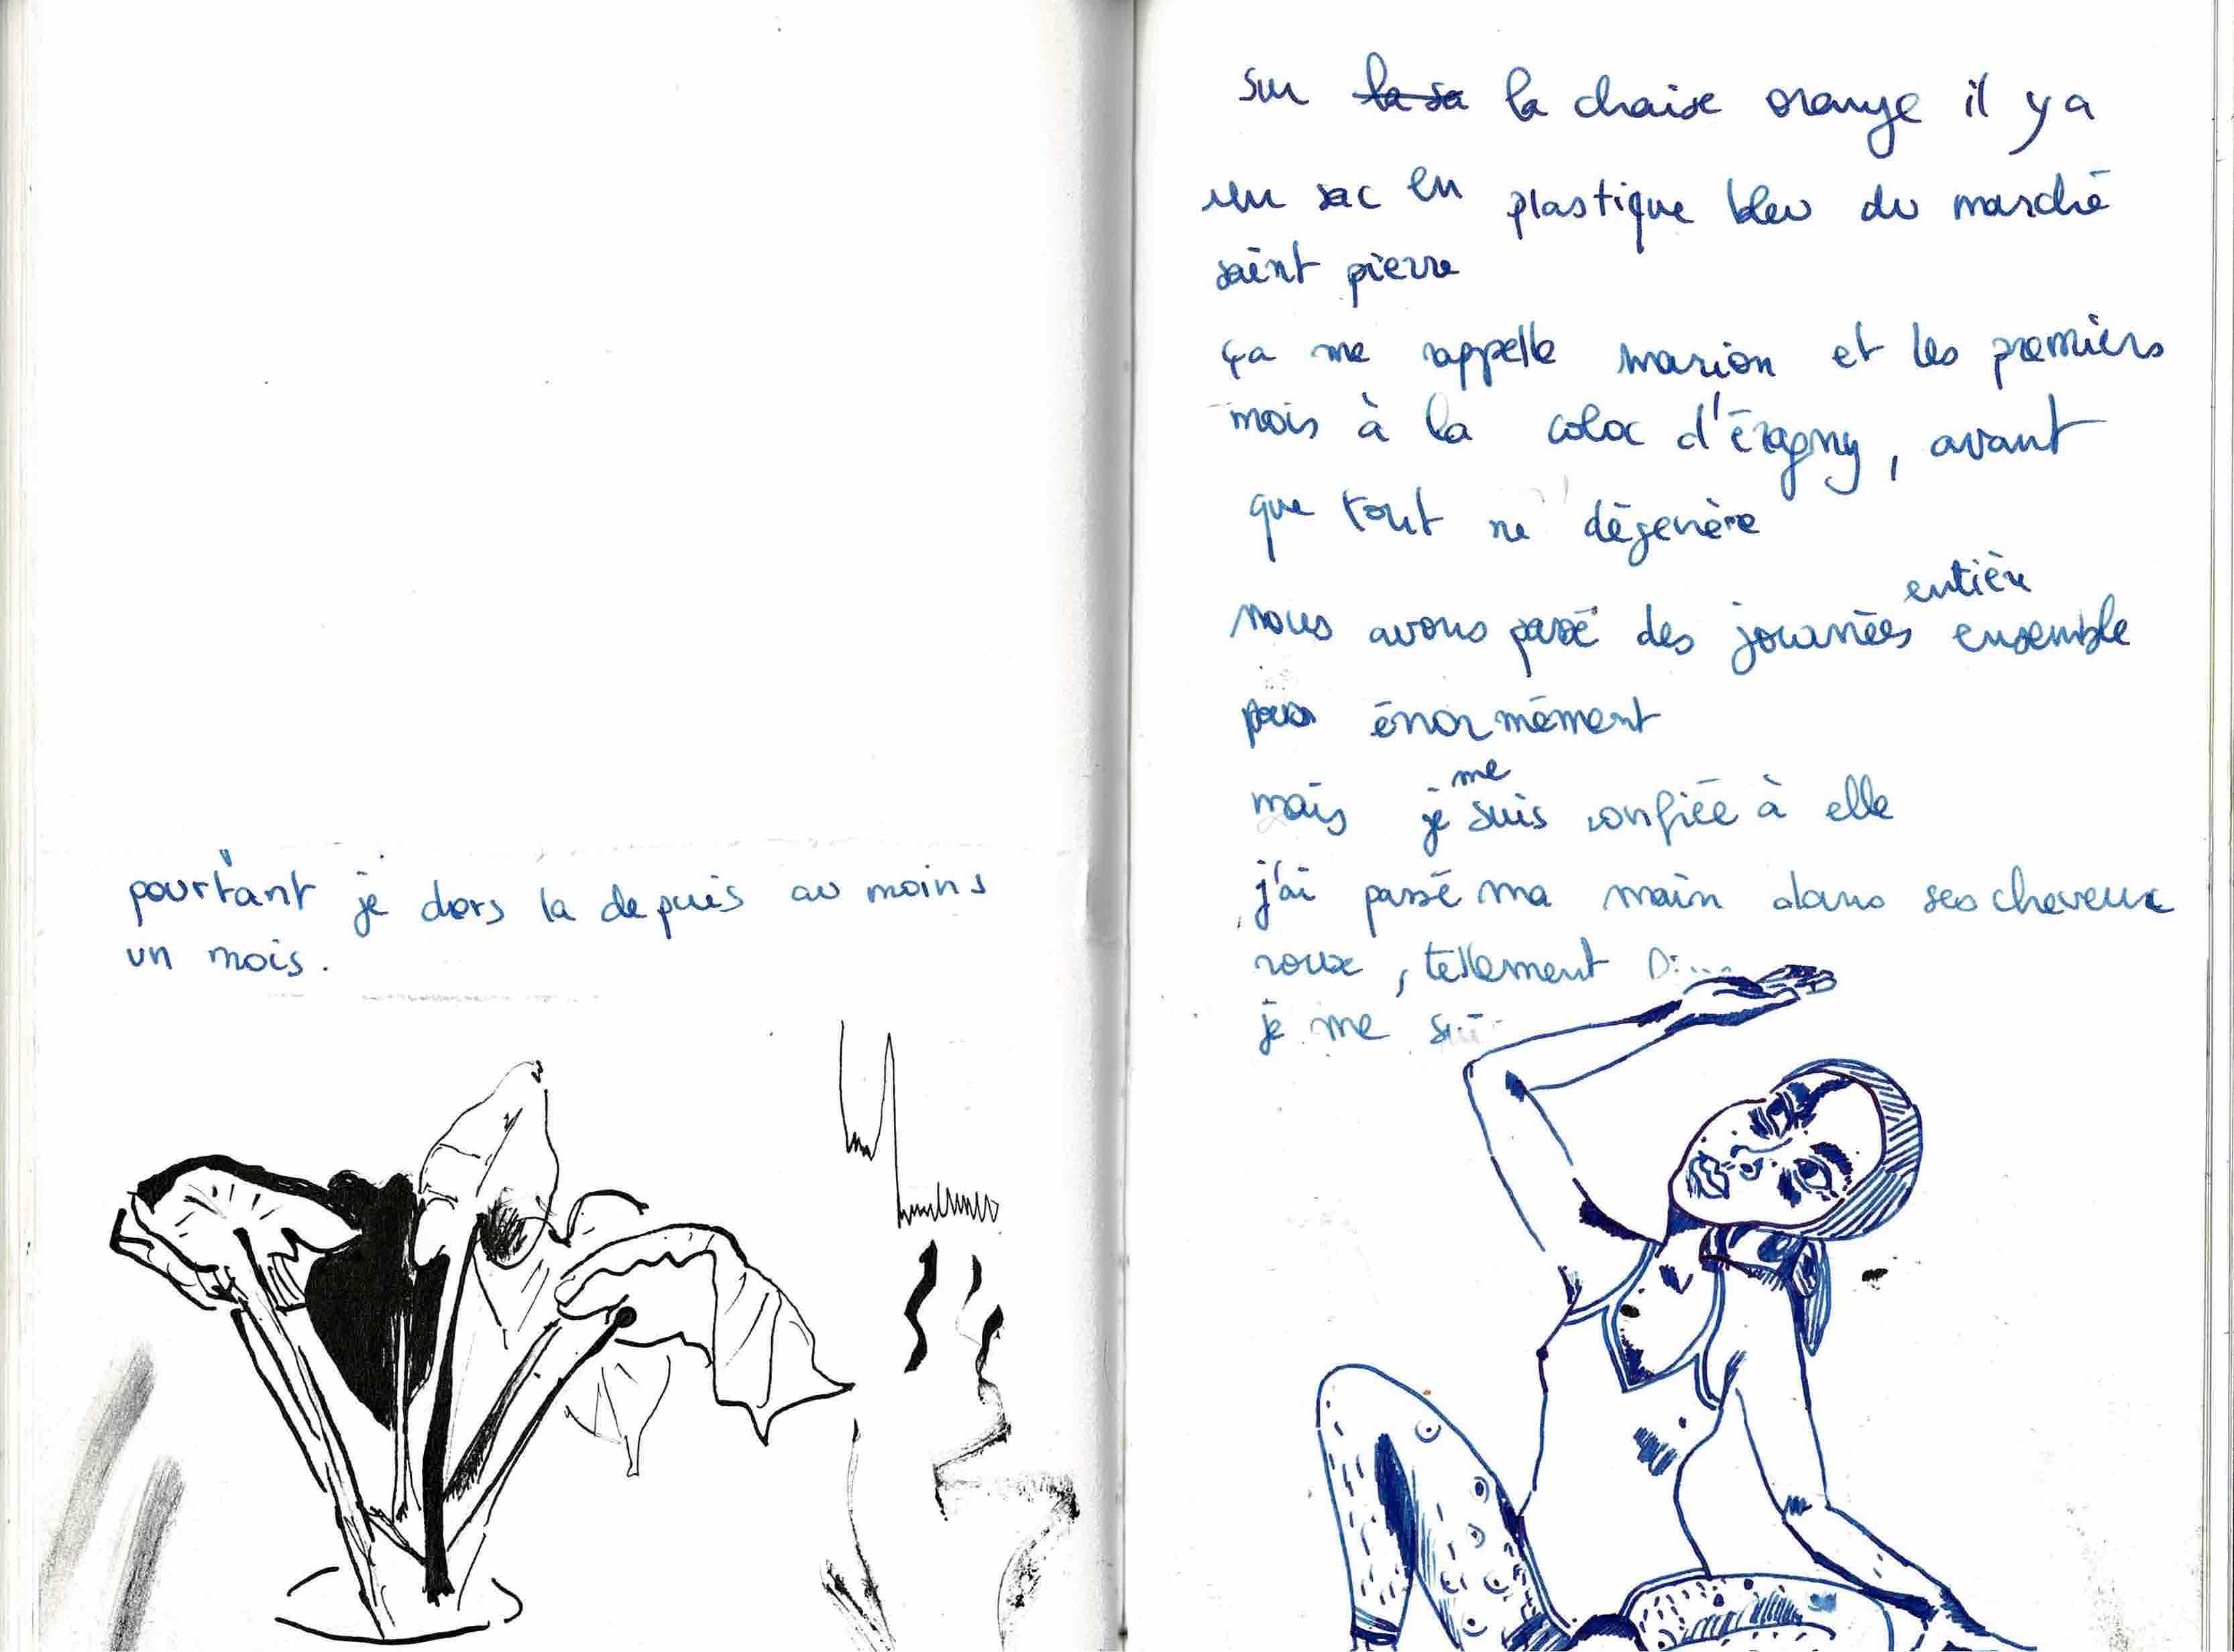 pourtant je dors la depuis au moins
un mois.
sur la sa la chaise orange il y a
un sac en plastique bleu du marché
saint pierre
ça me rappelle marion et les premiers
mois à la coloc d'éragny, avant
que tout ne dégenère
entière
nous avons passé des journées ensemble
pas énormément
me
mais je suis confiée à elle
j'ai passé ma main dans ses cheveux
roux, tellement
je me